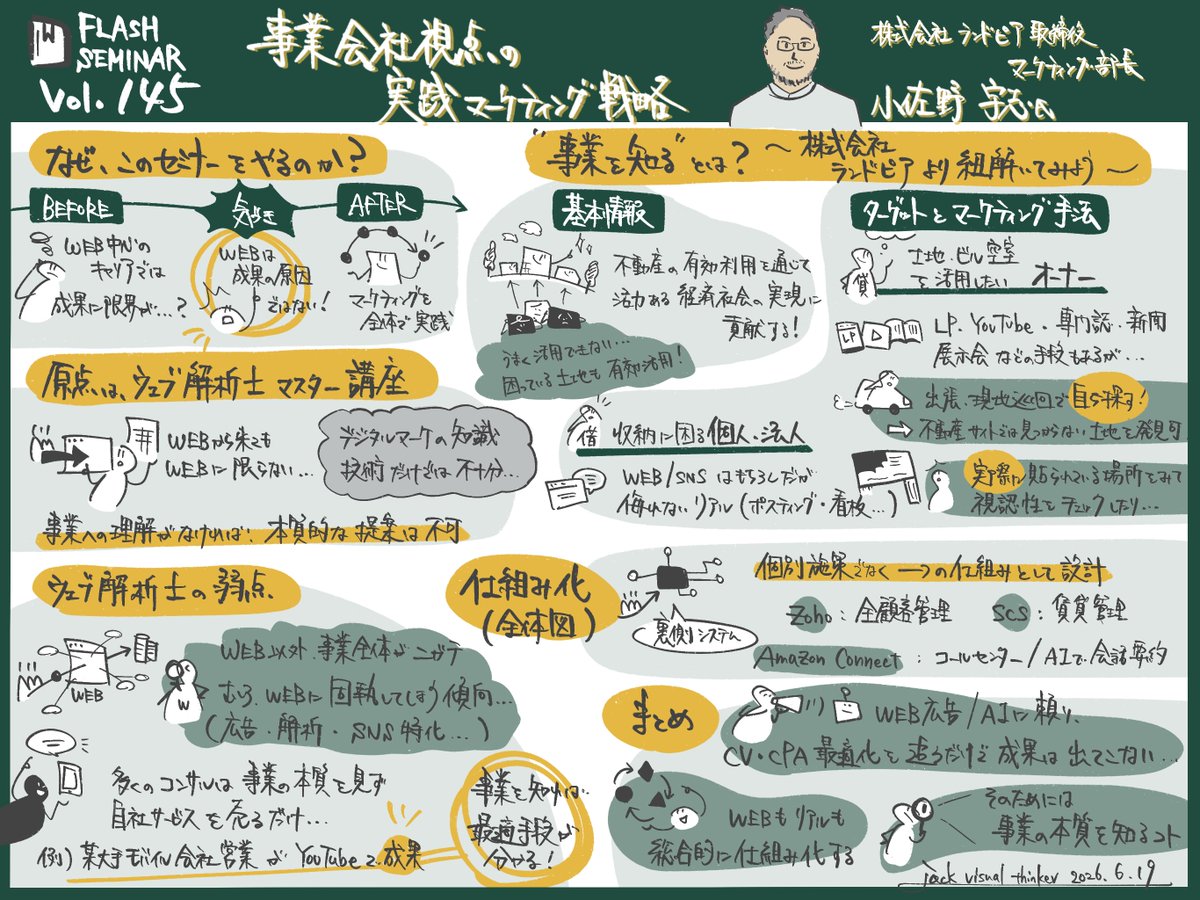 W
FLASH
SEMINAR
Vol.145
事業会社視点の
実践マーケティング戦略
株式会社ランドピア取締役
マーケティング部長
小佐野
なぜ、このセミナーをやるのか?
BEFORE
気づき
AFTER
WEB中心の
キャリアでは
成果に限界が…?
WEBは
成果の原因
ではない!
マーケティングを
全体で実践
原点は、ウェブ解析士マスター講座
WEBから来ても
WEBに限らない…
デジタルマーケの知識
技術だけでは不十分…
事業への理解がなければ本質的な提案は不可
ウェブ解析士の弱点
WEB
W
WEB以外、事業全体がニガテ
むしろ、WEBに固執してしまう傾向…
(広告・解析・SNS特化…)
多くのコンサルは事業の本質を見ず
自社サービスを売るだけ…
例)某大手モバイル会社営業がYouTubeで成果
事業を知れば
最適手段が
分かる!
"事業を知る"とは?~株式会社
ランドピアより紐解いてみよう~
基本情報
不動産の有効利用を通じて
活力ある経済社会の実現に
貢献する!
うまく活用できない…
困っている土地も有効活用!
借
収納に困る個人、法人
WEB/SNSはもちろんだが
侮れないリアル(ポスティング・看板…)
ターゲットとマーケティング手法
貸
土地・ビル空室
を活用したい オーナー
LP
LP、YouTube、専門誌、新聞
展示会などの手段もあるが…
出張、現地巡回で自ら探す!
⇒不動産サイトでは見つからない土地を発見可
実際に貼られている場所をみて
視認性をチェックしたり…
仕組み化
(全体図)
裏側システム
個別施策でなく一つの仕組みとして設計
Zoho:全顧客管理
SCS:賃貸管理
Amazon Connect:コールセンター/AIで会話要約
まとめ
WEB広告/AIに頼り、
CV・CPA最適化を追うだけで成果は出てこない…
WEBもリアルも
総合的に仕組み化する
そのためには
事業の本質を知るコト
jack visual thinker 2026.6.19